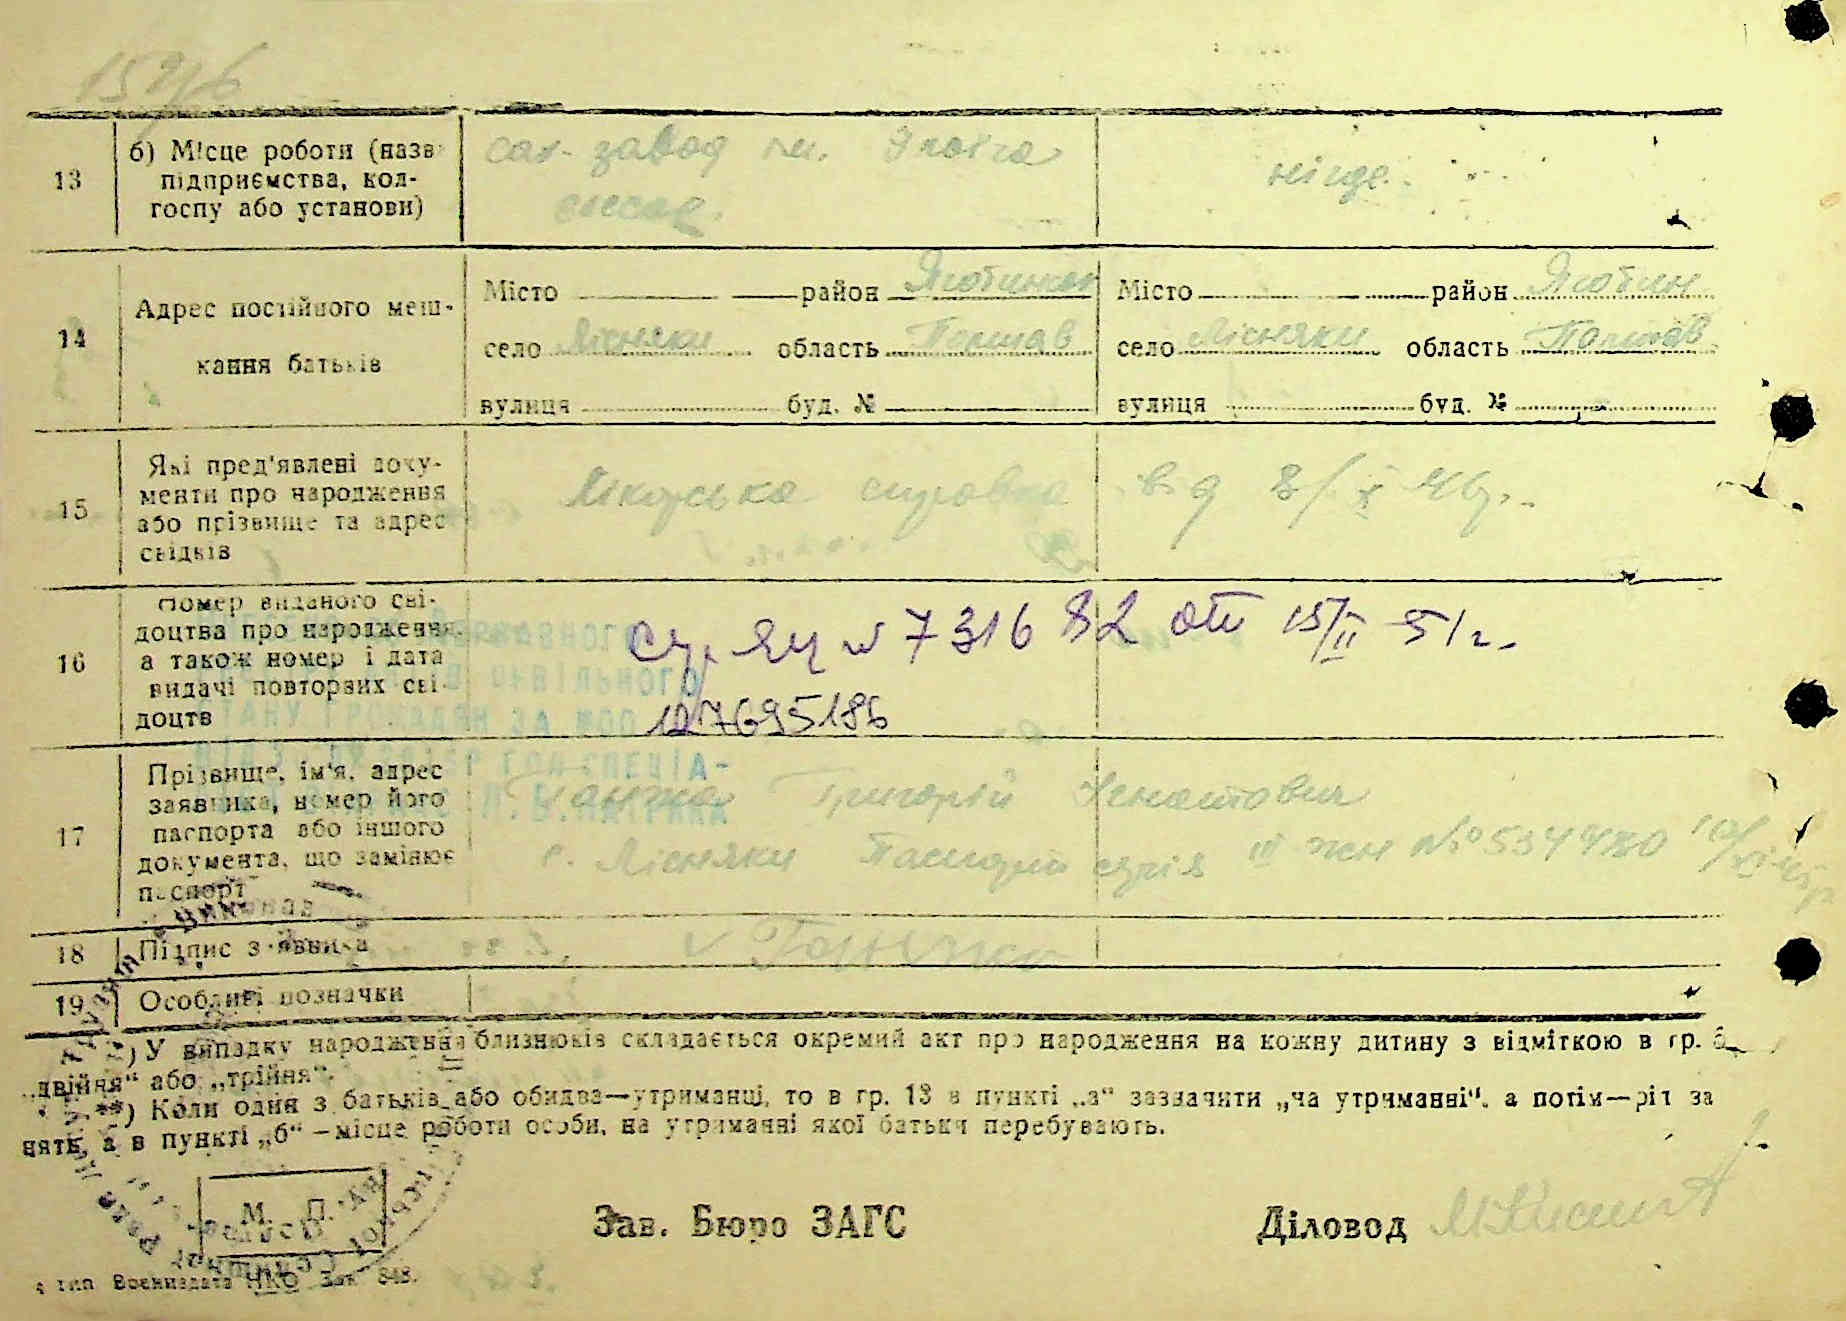 13
б) Місце роботи (назв
підприємства, кол-
госпу або установи)
сах. завод ім.
слесар.
нігде.
14
Адрес постійного меш-
кання батьків
Місто район Яготинськ
село Лісняки область Полтав
вулиця буд. №
Місто район Яготин
село Лісняки область Полтав
вулиця буд. №
15
Які пред'явлені доку-
менти про народження
або прізвище та адрес
свідків
Лікарська справка від 8/X 46р.
16
Номер виданого сві-
доцтва про народження,
а також номер і дата
видачі повторних сві-
доцтв
№ 731682 от 15/II 51г.
17
Прізвище, ім'я, адрес
заявника, номер його
паспорта або іншого
документа, що замінює
паспорт
Ганжа Григорій
с. Лісняки Паспорт серія III № 534780
18
Підпис заявника
19
Особливі позначки
*) У випадку народження близнюків складається окремий акт про народження на кожну дитину з відміткою в гр.
„двійня“ або „трійня“.
**) Коли один з батьків або обидва—утриманці, то в гр. 13 в пункті „а“ зазначити „на утриманні“, а потім—рід за
нять, а в пункті „б“—місце роботи особи, на утриманні якої батьки перебувають.
М. П.
Зав. Бюро ЗАГС
Діловод
тип Воениздата НКО Зак 848.